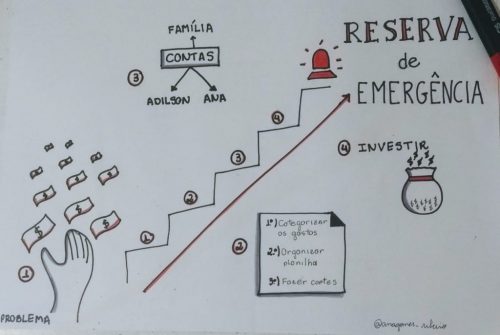 RESERVA
de
EMERGÊNCIA
FAMÍLIA
CONTAS
ADILSON ANA
3
4
3
2
1
4 INVESTIR
$ $ $
1
PROBLEMA
2
1º) Categorizar
os gastos
2º) Organizar
planilha
3º) Fazer cortes